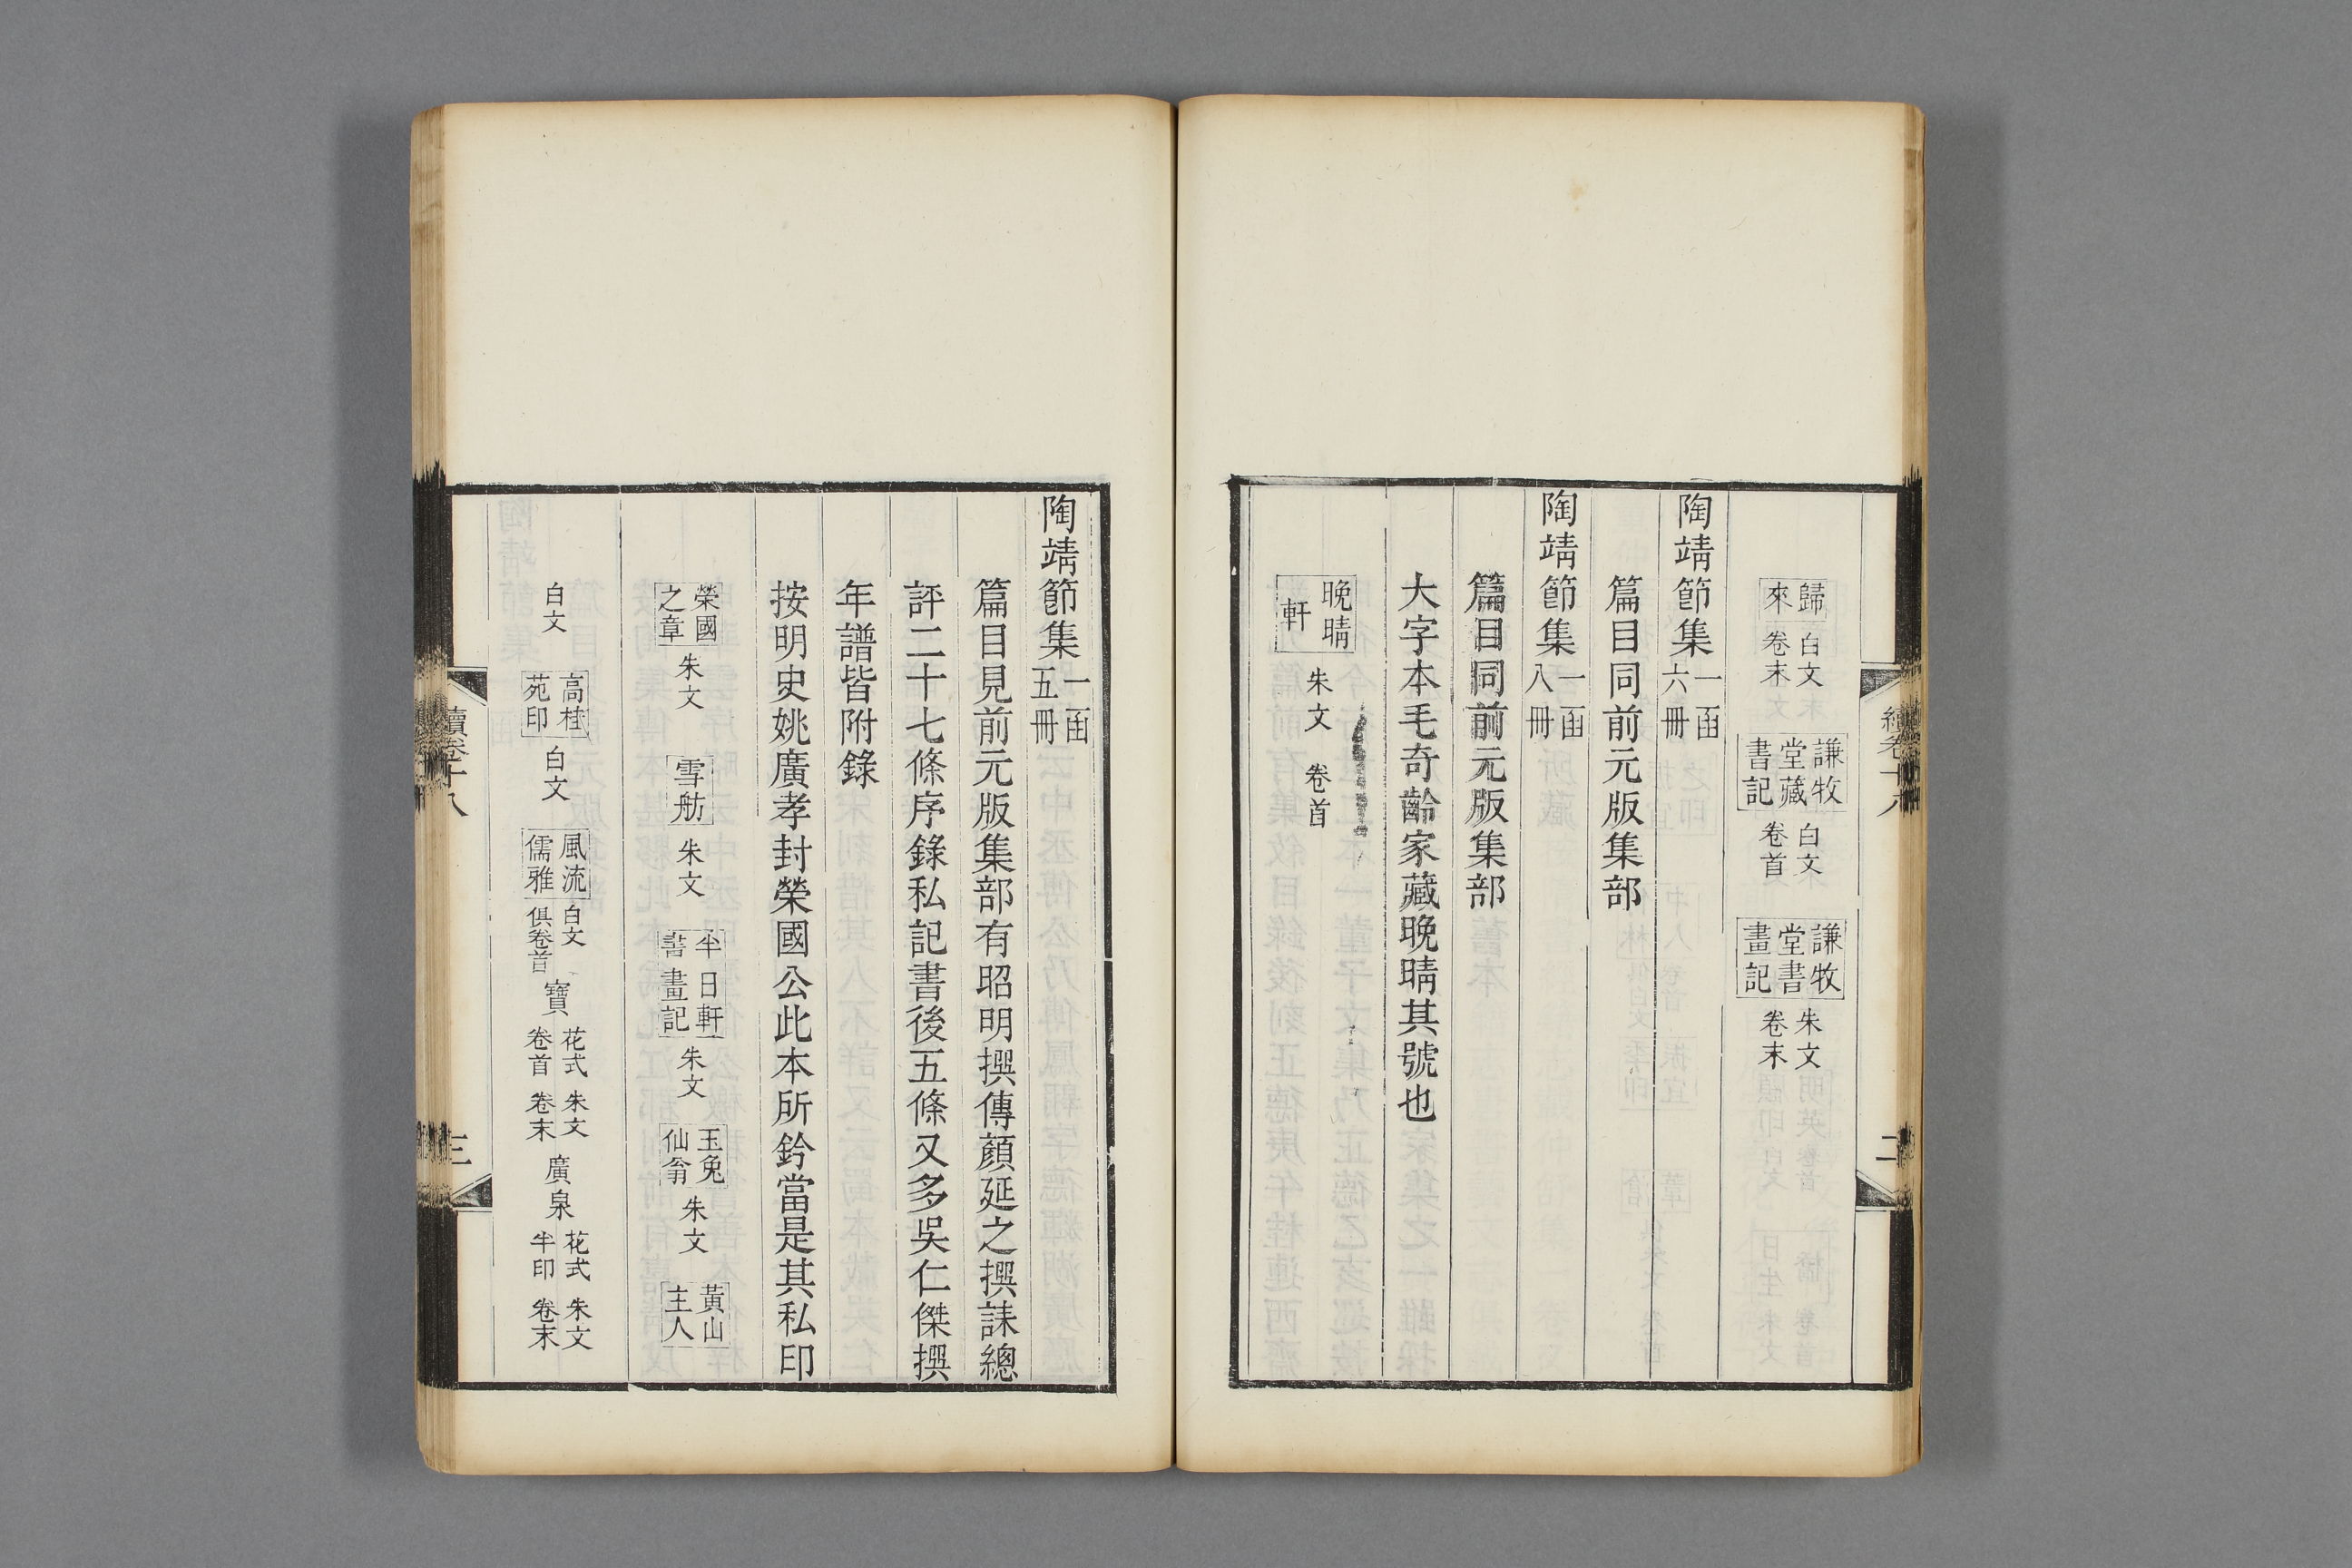 續卷十八
二
歸來 白文 卷末 謙牧堂藏書記 白文 卷首 謙牧堂書畫記 朱文 卷末
陶靖節集 一函六冊
篇目同前元版集部
陶靖節集 一函八冊
篇目同前元版集部
大字本毛奇齡家藏晚晴其號也
晚晴軒 朱文 卷首
陶靖節集 一函五冊
篇目見前元版集部有昭明撰傳顏延之撰誄總
評二十七條序錄私記書後五條又多吳仁傑撰
年譜皆附錄
按明史姚廣孝封榮國公此本所鈐當是其私印
榮國之章 朱文 雪舫 朱文 半日軒書畫記 朱文 玉兔仙翁 朱文 黃山主人
白文 高桂苑印 白文 風流儒雅 白文 俱卷首 寶 花式 卷首 朱文 卷末 廣泉 花式 半印 朱文 卷末
續卷十八
三